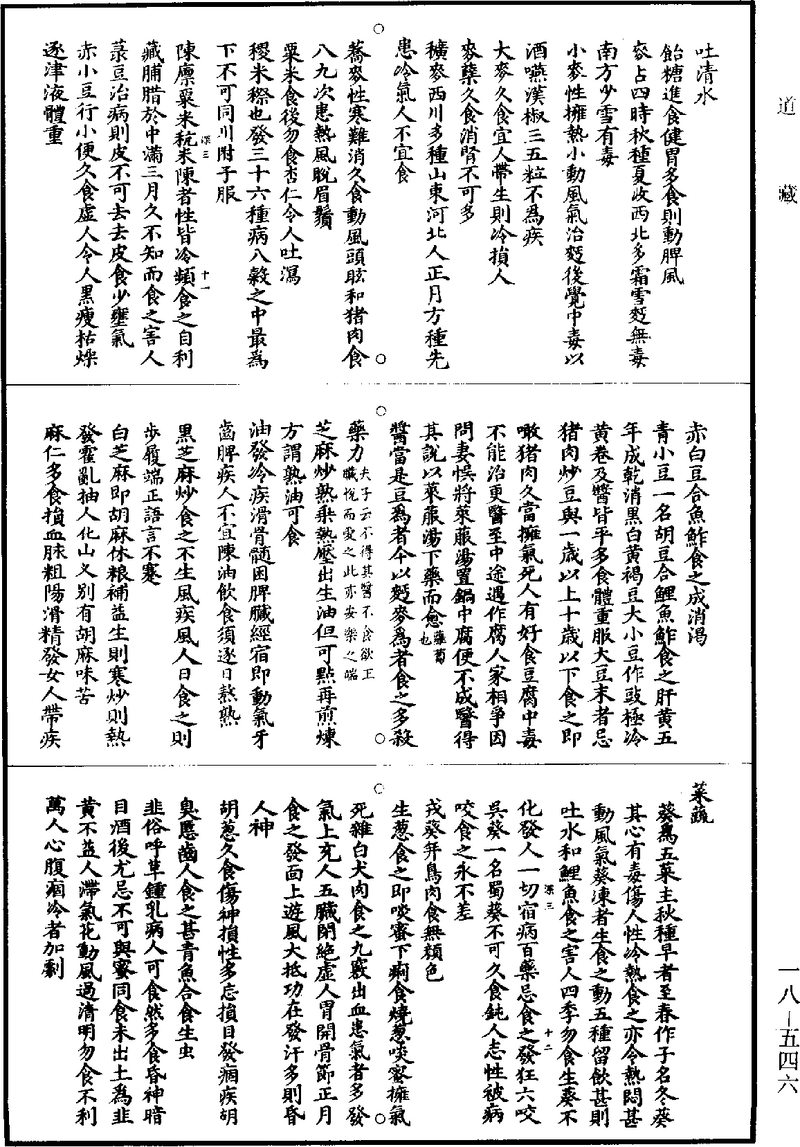 道藏
吐清水
飴糖進食健胃多食則動脾風
麥占四時秋種夏收西北多霜雪麫無毒
南方少雪有毒
小麥性擁熱小動風氣治麫後覺中毒以
酒嚥漢椒三五粒不為疾
大麥久食宜人帶生則冷損人
麥糵久食消腎不可多
穬麥西川多種山東河北人正月方種先
患冷氣人不宜食
蕎麥性寒難消久食動風頭眩和猪肉食
八九次患熱風脫眉鬚
粟米食後勿食杏仁令人吐瀉
稷米穄也發三十六種病八穀之中最為
下不可同川附子服
陳廩粟米秔米陳者性皆冷頻食之自利
深三
十一
藏脯腊於中滿三月久不知而食之害人
菉豆治病則皮不可去去皮食少壅氣
赤小豆行小便久食虛人令人黑瘦枯燥
逐津液體重
赤白豆合魚鮓食之成消渴
青小豆一名胡豆合鯉魚鮓食之肝黃五
年成乾消黑白黃褐豆大小豆作豉極冷
黃卷及醬皆平多食體重服大豆末者忌
猪肉炒豆與一歲以上十歲以下食之即
噉猪肉久當擁氣死人有好食豆腐中毒
不能治更醫至中途遇作腐人家相爭因
問妻悮將萊菔湯置鍋中腐便不成醫得
其說以萊菔湯下藥而愈蘿蔔也
醬當是豆為者今以麫麥為者食之多殺
藥力夫子云不得其醬不食欲正臟悅而愛之此亦安樂之端
芝麻炒熟乘熱壓出生油但可點再煎煉
方謂熟油可食
油發冷疾滑骨髓困脾臟經宿即動氣牙
齒脾疾人不宜陳油飲食須逐日熬熟
黑芝麻炒食之不生風疾風人日食之則
步履端正語言不蹇
白芝麻即胡麻休粮補益生則寒炒則熱
發霍亂抽人化山义別有胡麻味苦
麻仁多食損血脉粗陽滑精發女人帶疾
菜蔬
葵為五菜主秋種早者至春作子名冬葵
其心有毒傷人性冷熱食之亦令熱悶甚
動風氣葵凍者生食之動五種留飲甚則
吐水和鯉魚食之害人四季勿食生葵不
化發人一切宿病百藥忌食之發狂六咬
深三
十二
吳葵一名蜀葵不可久食鈍人志性被病
咬食之永不差
戎葵并鳥肉食無顏色
生葱食之即啖蜜下痢食燒葱啖蜜擁氣
死雜白犬肉食之九竅出血患氣者多發
氣上充人五臟閉絕虛人胃開骨節正月
食之發面上遊風大抵功在發汗多則昏
人神
胡葱久食傷神損性多忘損目發痼疾胡
臭䘌齒人食之甚青魚合食生虫
韭俗呼草鍾乳病人可食然多食昏神暗
目酒後尤忌不可與蜜同食未出土為韭
黃不益人滯氣花動風過清明勿食不利
萬人心腹痼冷者加劇
一八—五四六